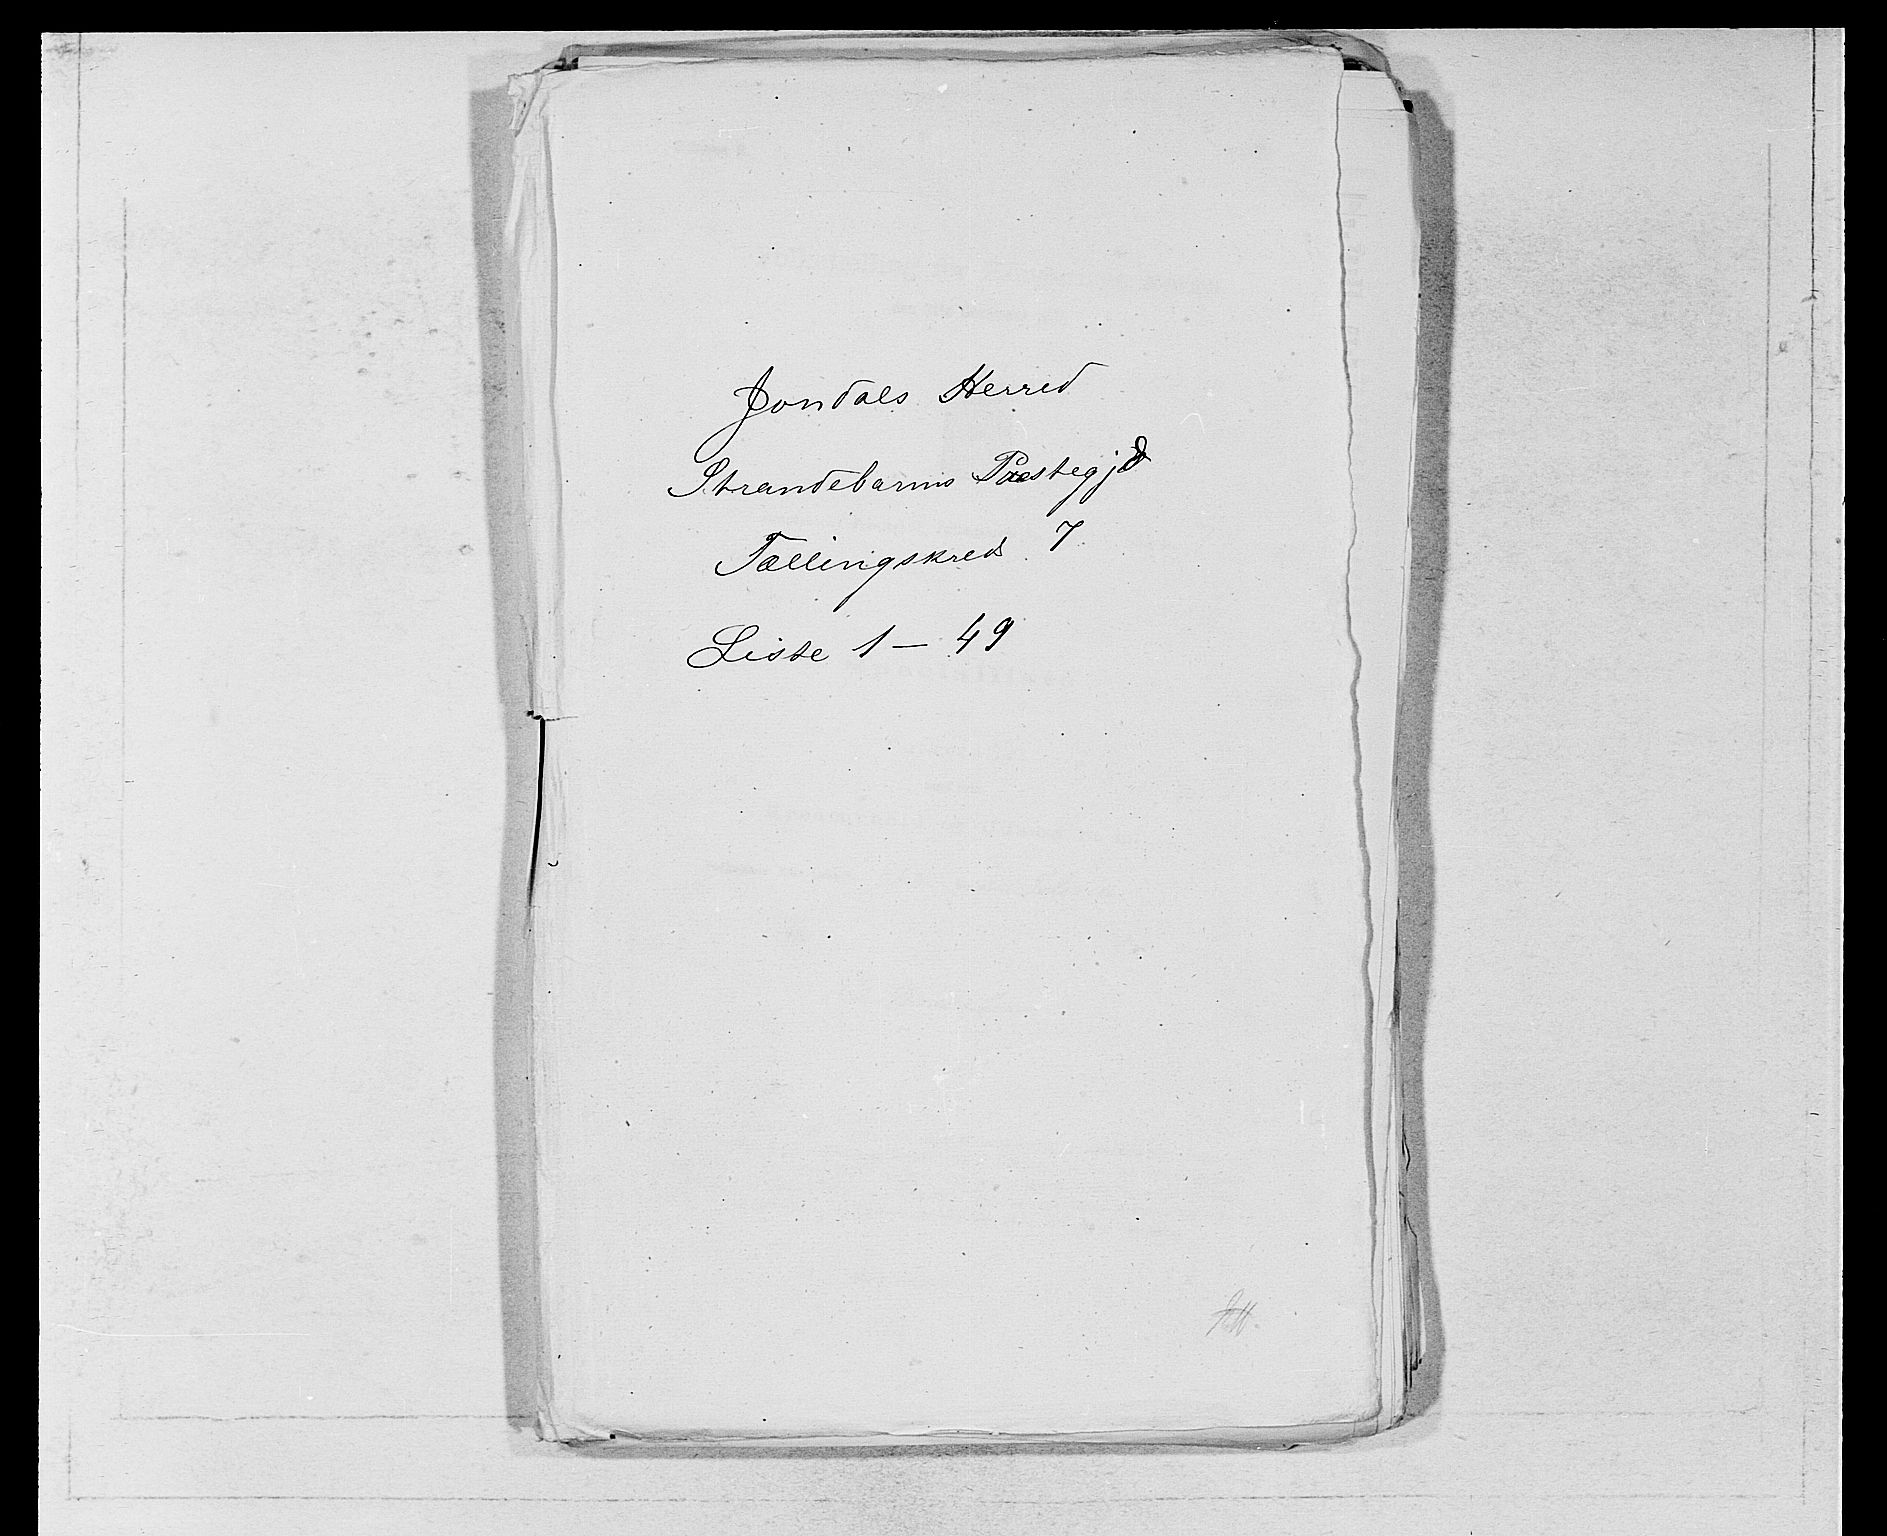 Jondals Herred
Strandebarms Præstegjd
Tællingskreds 7
Liste 1 — 49